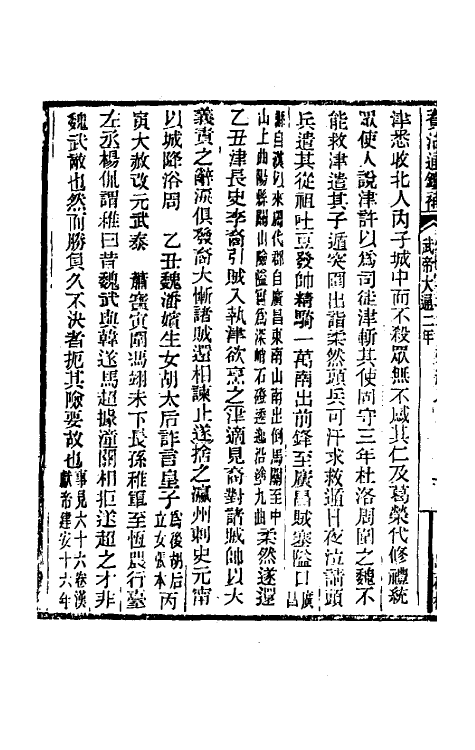 資治通鑑補
武帝大通二年
津悉收北人內子城中而不殺眾無不感其仁及葛榮代修禮統
眾使人說津許以為司徒津斬其使固守三年杜洛周圍之魏不
能救津遣其子遁突圍出詣柔然頭兵可汗求救遁日夜泣請頭
兵遣其從祖吐豆發帥精騎一萬南出前鋒至廣昌賊塞隘口廣昌
縣自漢以來屬代郡自廣昌東南山南出倒馬關至中山上曲陽縣關山險隘實為深峭石磴逶迤沿塗九曲柔然遂還
乙丑津長史李裔引賊入執津欲烹之津適見裔對諸賊帥以大
義責之辭淚俱發裔大慚諸賊還相諫止遂捨之瀛州刺史元甯
以城降洛周 乙丑魏潘嬪生女胡太后詐言皇子為後胡后立女張本丙
寅大赦改元武泰 蕭寶寅圍馮翊未下長孫稚軍至恆農行臺
左丞楊侃謂稚曰昔魏武與韓遂馬超據潼關相拒遂超之才非
魏武敵也然而勝負久不決者扼其險要故也事見六十六卷漢獻帝建安十六年